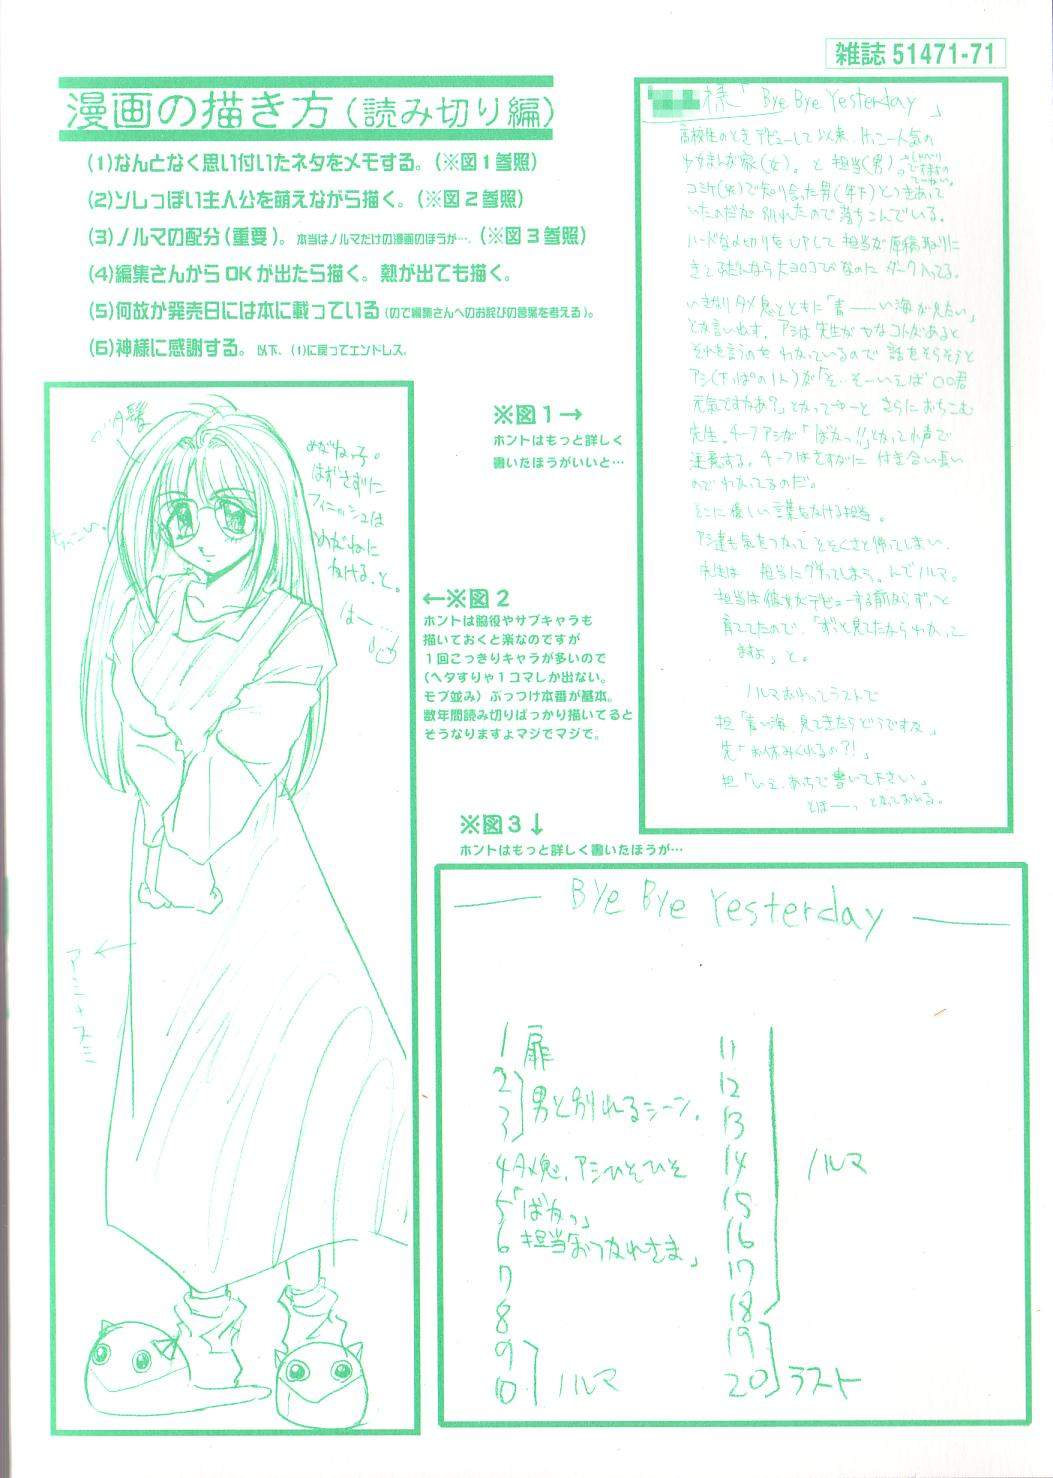 雑誌 51471-71
漫画の描き方(読み切り編)
(1)なんとなく思い付いたネタをメモする。(※図1参照)
(2)ソレっぽい主人公を萌えながら描く。(※図2参照)
(3)ノルマの配分(重要)。本当はノルマだけの漫画のほうが…。(※図3参照)
(4)編集さんからOKが出たら描く。熱が出ても描く。
(5)何故か発売日には本に載っている(ので編集さんへのお詫びの言葉を考える)。
(6)神様に感謝する。以下、(1)に戻ってエンドレス。
※図1→
ホントはもっと詳しく
書いたほうがいいと…
様「Bye Bye Yesterday」
高校生のときデビューして以来、けっこー人気の
少女まんが家(女)。と担当(男)。
コミケ(笑)で知り合った男(年下)とつきあって
いたのだが別れたので落ちこんでいる。
ハードな〆切りをUPして担当が原稿取りに
いきなりタメ息とともに「青――い海が見たい」
とか言い出す。アシは先生がヤなコトがあると
それを言うのをわかっているので話をそらそうと
アシ(下っぱの1人)が「そ…そーいえば○○君
元気ですかあ?」とかってゆーとさらにおちこむ
先生。チーフアシが「ばかっ!!」とかって小声で
注意する。チーフはさすがに付き合い長い
のでわかってるのだ。
そこに優しい言葉をかける担当。
アシ達も気をつかってそそくさと帰ってしまい、
先生は担当にグチってしまう。んでノルマ。
担当は彼女がデビューする前からずっと
育ててたので、「ずっと見てたからわかって
ますよ」と。
ノルマおわってラストで
担「青い海、見てきたらどうですか」
先「お休みくれるの?!」
担「いえ、あっちで書いて下さい」
とほーっ とかっておわる。
ベタ髪
めがねっ子。
はずさずに
フィニッシュは
めがねに
かける、と。
はー…
アミ+スミ
←※図2
ホントは脇役やサブキャラも
描いておくと楽なのですが
1回こっきりキャラが多いので
(ヘタすりゃ1コマしか出ない。
モブ並み)ぶっつけ本番が基本。
数年間読み切りばっかり描いてると
そうなりますよマジでマジで。
※図3↓
ホントはもっと詳しく書いたほうが…
Bye Bye Yesterday
1 扉
2
3 男と別れるシーン。
4 タメ息、アシひそひそ
5 「ばかっ」
6 担当「おつかれさま」
7
8
9
10 ノルマ
11
12
13
14 ノルマ
15
16
17
18
19
20 ラスト